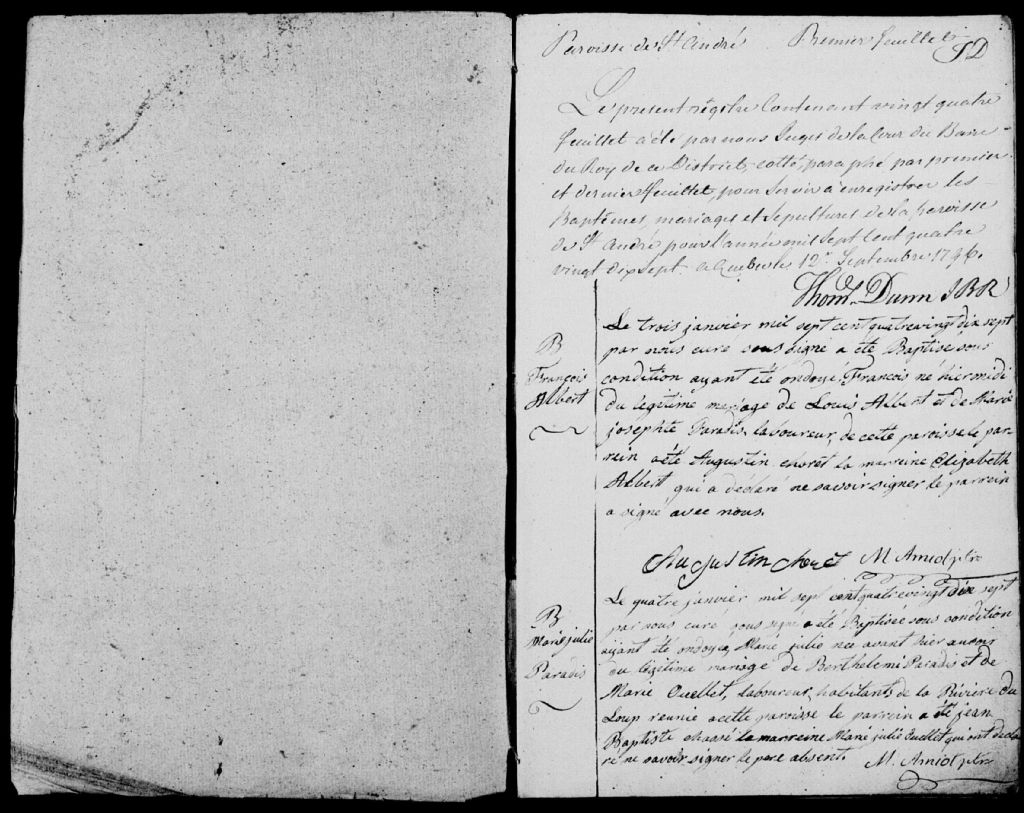 Paroisse de St André Premier feuillet
TD
Le present régitre Contenant vingt quatre
feuillet a été par nous Juges de la Cour du Banc
du Roy de ce District, cotté, paraphé par premier
et dernier feuillet, pour servir a enregistrer les
Baptêmes, mariages et Sepultures de la paroisse
de St André pour l'année mil Sept Cent quatre
vingt dix Sept. a Quebec le 12e Septembre 1796.
Thoms Dunn JBR
B
François
Albert
Le trois janvier mil sept cent quatrevingt dix sept
par nous curé sous signé a été Baptisé sous
condition ayant été ondoyé, François né hier midi
du legitime mariage de Louis Albert et de Marie
josephte Paradis, laboureur, de cette paroisse le par-
rein a été Augustin choret la marreine Elizabeth
Albert qui a declaré ne savoir signer le parrein
a signé avec nous.
Augustin choret M. Amiot ptre
B
Marie julie
Paradis
Le quatre janvier mil sept cent quatrevingt dix sept
par nous cure sous signé a été Baptisée sous condition
ayant été ondoyée, Marie julie nee avant hier
du legitime mariage de Berthelemi Paradis et de
Marie Ouellet, laboureur, habitants de la Riviere du
Loup reunie a cette paroisse le parrein a été jean
Baptiste chassé la marreine Marie julie Ouellet qui ont decla
ré ne savoir signer le pere absent. M. Amiot ptre